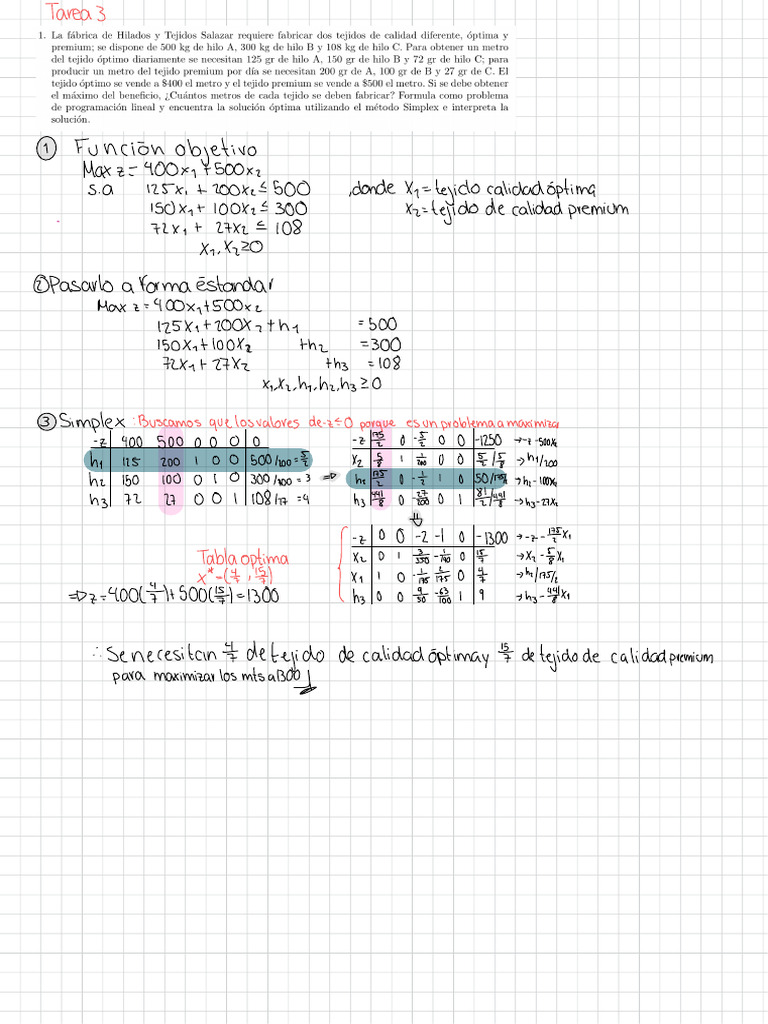 Tarea 3
1. La fábrica de Hilados y Tejidos Salazar requiere fabricar dos tejidos de calidad diferente, óptima y
premium; se dispone de 500 kg de hilo A, 300 kg de hilo B y 108 kg de hilo C. Para obtener un metro
del tejido óptimo diariamente se necesitan 125 gr de hilo A, 150 gr de hilo B y 72 gr de hilo C; para
producir un metro del tejido premium por día se necesitan 200 gr de A, 100 gr de B y 27 gr de C. El
tejido óptimo se vende a $400 el metro y el tejido premium se vende a $500 el metro. Si se debe obtener
el máximo del beneficio, ¿Cuántos metros de cada tejido se deben fabricar? Formula como problema
de programación lineal y encuentra la solución óptima utilizando el método Simplex e interpreta la
solución.
① Función objetivo
Max z = 400x₁ + 500x₂
s.a 125x₁ + 200x₂ ≤ 500 ,donde x₁ = tejido calidad óptima
150x₁ + 100x₂ ≤ 300 x₂ = tejido de calidad premium
72x₁ + 27x₂ ≤ 108
x₁, x₂ ≥ 0
② Pasarlo a forma éstandar
Max z = 400x₁ + 500x₂
125x₁ + 200x₂ + h₁ = 500
150x₁ + 100x₂ + h₂ = 300
72x₁ + 27x₂ + h₃ = 108
x₁, x₂, h₁, h₂, h₃ ≥ 0
③ Simplex : Buscamos que los valores de -z ≤ 0 porque es un problema a maximizar
-z 400 500 0 0 0 0
h₁ 125 200 1 0 0 500/200 = 5/2
h₂ 150 100 0 1 0 300/100 = 3 ⇒
h₃ 72 27 0 0 1 108/27 = 4
-z 175/2 0 -5/2 0 0 -1250 → -z - 500x₂
x₂ 5/8 1 1/200 0 0 5/2 / 5/8 → h₁/200
h₂ 175/2 0 -1/2 1 0 50/175/2 → h₂ - 100x₂
h₃ 441/8 0 -27/200 0 1 81/2 / 441/8 → h₃ - 27x₂
⇓
-z 0 0 -2 -1 0 -1300 → -z - 175/2 x₁
x₂ 0 1 3/350 -1/140 0 15/7 → x₂ - 5/8 x₁
x₁ 1 0 -1/175 2/175 0 4/7 → h₂/175/2
h₃ 0 0 9/50 -63/100 1 9 → h₃ - 441/8 x₁
Tabla optima
x* = (4/7, 15/7)
⇒ z = 400(4/7) + 500(15/7) = 1300
∴ Se necesitan 4/7 de tejido de calidad óptima y 15/7 de tejido de calidad premium
para maximizar los mts a 1300